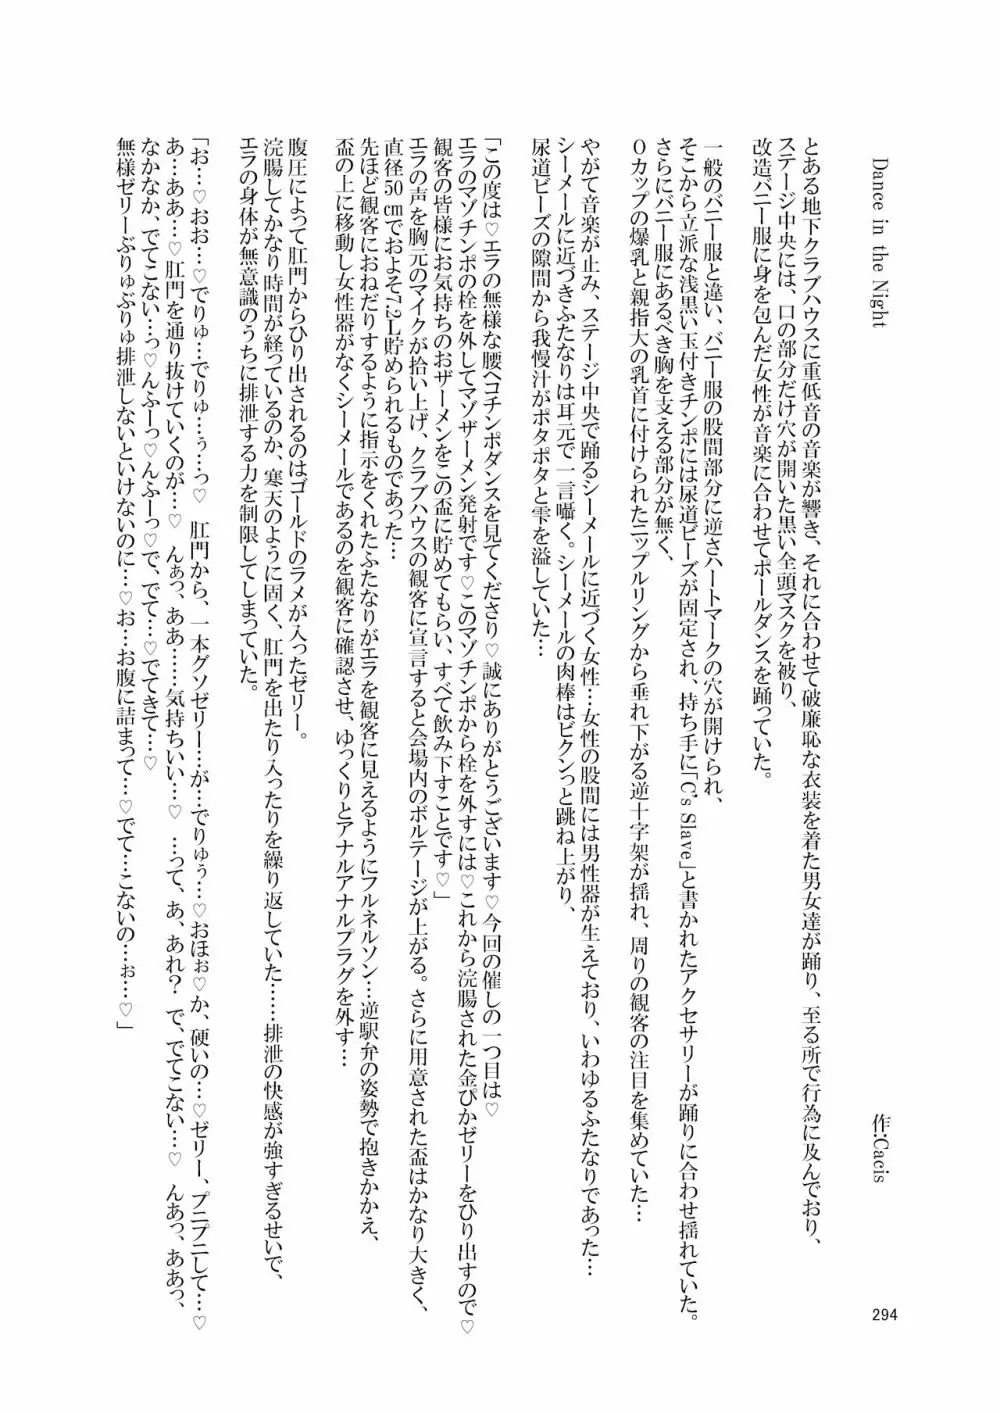 Dance in the Night
作：Cacis
とある地下クラブハウスに重低音の音楽が響き、それに合わせて破廉恥な衣装を着た男女達が踊り、至る所で行為に及んでおり、
ステージ中央には、口の部分だけ穴が開いた黒い全頭マスクを被り、
改造バニー服に身を包んだ女性が音楽に合わせてポールダンスを踊っていた。
一般のバニー服と違い、バニー服の股間部分に逆さハートマークの穴が開けられ、
そこから立派な浅黒い玉付きチンポには尿道ビーズが固定され、持ち手に「C's Slave」と書かれたアクセサリーが踊りに合わせ揺れていた。
さらにバニー服にあるべき胸を支える部分が無く、
Oカップの爆乳と親指大の乳首に付けられたニップルリングから垂れ下がる逆十字架が揺れ、周りの観客の注目を集めていた…
やがて音楽が止み、ステージ中央で踊るシーメールに近づく女性…女性の股間には男性器が生えており、いわゆるふたなりであった…
シーメールに近づきふたなりは耳元で一言囁く。シーメールの肉棒はビクンっと跳ね上がり、
尿道ビーズの隙間から我慢汁がポタポタと雫を溢していた…
「この度は♡エラの無様な腰ヘコチンポダンスを見てくださり♡誠にありがとうございます♡今回の催しの一つ目は♡
エラのマゾチンポの栓を外してマゾザーメン発射です♡このマゾチンポから栓を外すには♡これから浣腸された金ぴかゼリーをひり出すので♡
観客の皆様にお気持ちのおザーメンをこの盃に貯めてもらい、すべて飲み下すことです♡」
エラの声を胸元のマイクが拾い上げ、クラブハウスの観客に宣言すると会場内のボルテージが上がる。さらに用意された盃はかなり大きく、
直径50cmでおよそ7.2L貯められるものであった…
先ほど観客におねだりするように指示をくれたふたなりがエラを観客に見えるようにフルネルソン…逆駅弁の姿勢で抱きかかえ、
盃の上に移動し女性器がなくシーメールであるのを観客に確認させ、ゆっくりとアナルアナルプラグを外す…
腹圧によって肛門からひり出されるのはゴールドのラメが入ったゼリー。
浣腸してかなり時間が経っているのか、寒天のように固く、肛門を出たり入ったりを繰り返していた……排泄の快感が強すぎるせいで、
エラの身体が無意識のうちに排泄する力を制限してしまっていた。
「お…♡おお…♡でりゅ…でりゅ…ぅ…っ♡　肛門から、一本グソゼリー…が…でりゅぅ…♡おほぉ♡か、硬いの…♡ゼリー、プニプニして…♡
あ…ああ…♡肛門を通り抜けていくのが…♡　んぁっ、ああ……気持ちいい…♡　…って、あ、あれ？　で、でてこない…♡　んあっ、ああっ、
なかなか、でてこない…っ♡んふーっ♡んふーっ♡で、でて…♡でてきて…♡
無様ゼリーぶりゅぶりゅ排泄しないといけないのに…♡お…お腹に詰まって…♡でて…こないの…ぉ…♡」
294